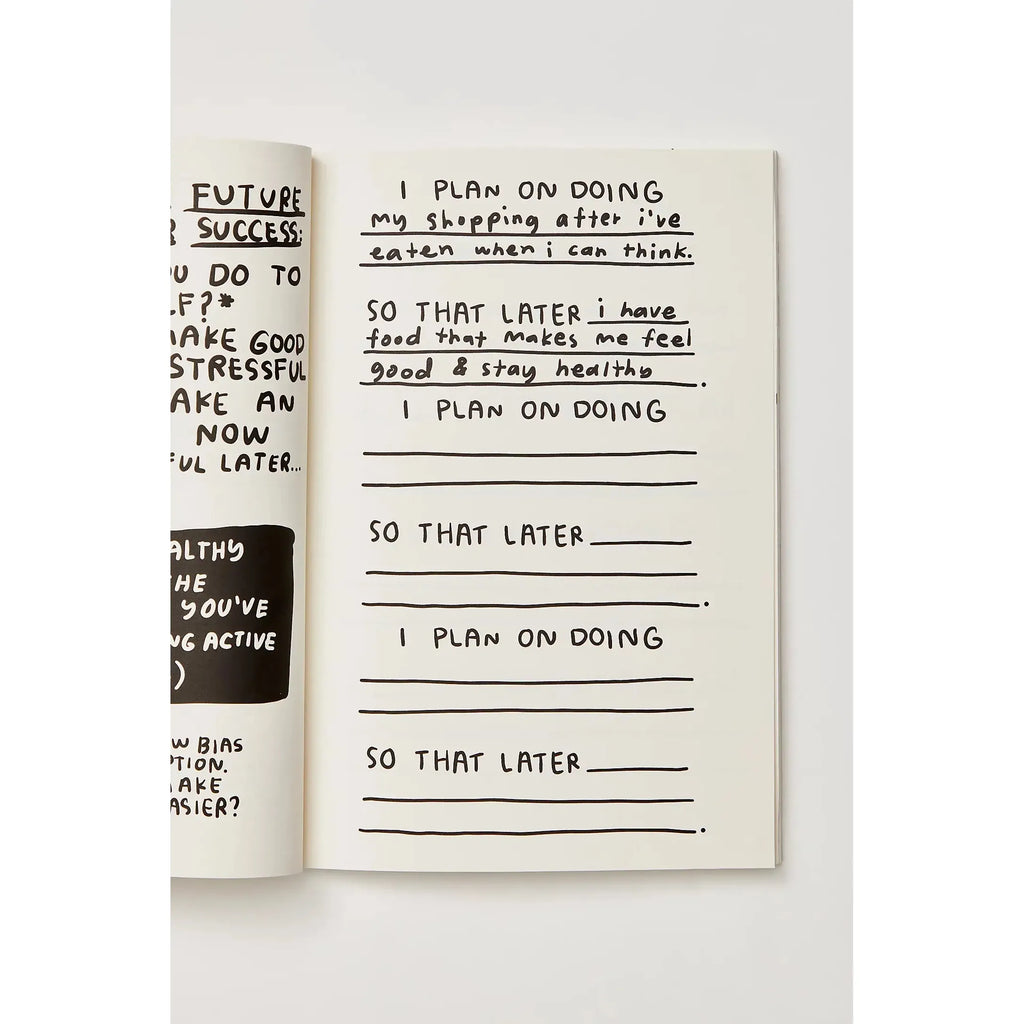 FUTURE
SUCCESS:
DO TO
GOOD
STRESSFUL
AN
NOW
LATER...
YOU'VE
ACTIVE
BIAS
I PLAN ON DOING
my shopping after i've
eaten when i can think.
SO THAT LATER i have
food that makes me feel
good & stay healthy.
I PLAN ON DOING
SO THAT LATER
.
I PLAN ON DOING
SO THAT LATER
.